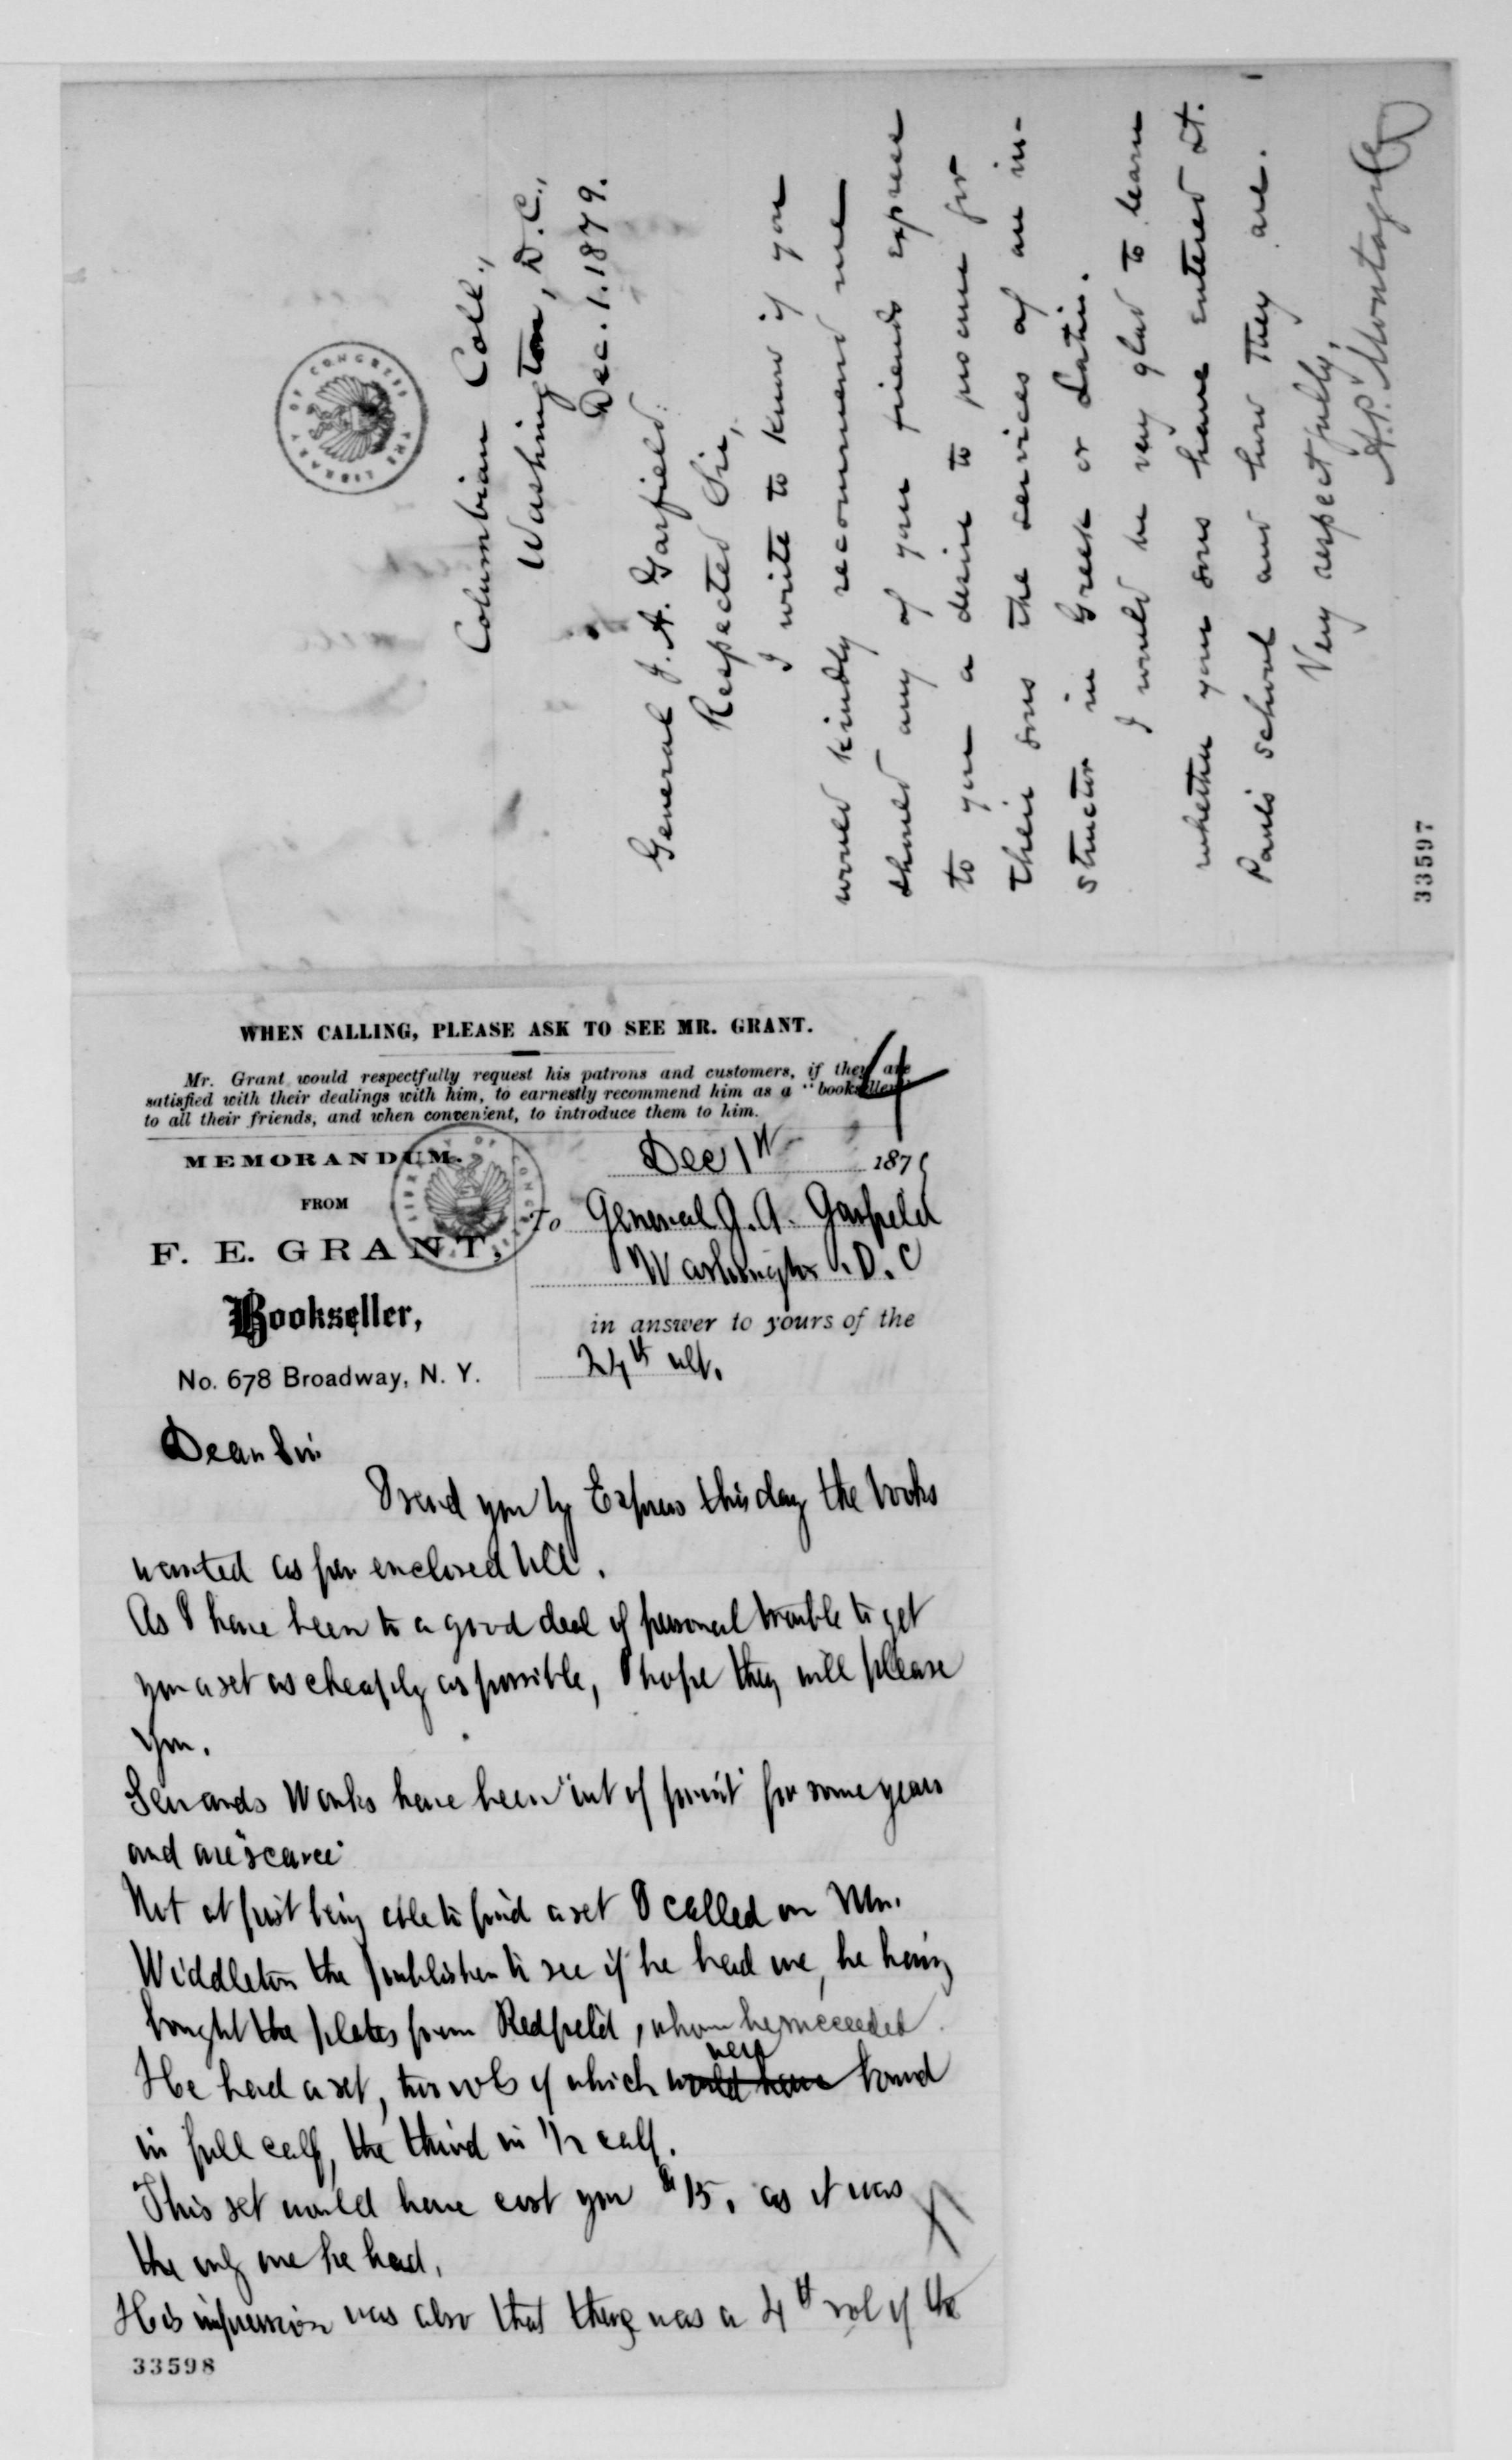 Columbian Coll.,
Washington, D.C.,
Dec. 1. 1879.
General J. A. Garfield:
Respected Sir,
I write to know if you
would kindly recommend me
should any of your friends express
to you a desire to procure for
their sons the services of an in-
structor in Greek or Latin.
I would be very glad to learn
whether your sons have entered St.
Paul's school and how they are.
Very respectfully,
A.P. Montague
33597
THE LIBRARY OF CONGRESS
WHEN CALLING, PLEASE ASK TO SEE MR. GRANT.
Mr. Grant would respectfully request his patrons and customers, if they are
satisfied with their dealings with him, to earnestly recommend him as a "bookseller"
to all their friends, and when convenient, to introduce them to him.
4
MEMORANDUM.
FROM
F. E. GRANT,
Bookseller,
No. 678 Broadway, N. Y.
Dec 1st 1879
To General J. A. Garfield
Washington. D. C
in answer to yours of the
24th ult.
Dear Sir
I send you by Express this day the books
wanted as per enclosed bill.
As I have been to a good deal of personal trouble to get
you a set as cheaply as possible, I hope they will please
you.
Sewards Works have been "out of print" for some years
and are "scarce"
Not at first being able to find a set I called on Mr.
Widdleton the publisher to see if he had one, he having
bought the plates from Redfield, whom he succeeded.
He had a set, two vols of which would have were bound
in full calf, the third in 1/2 calf.
This set would have cost you $15. as it was
the only one he had.
His impression was also that there was a 4th vol of the
33598